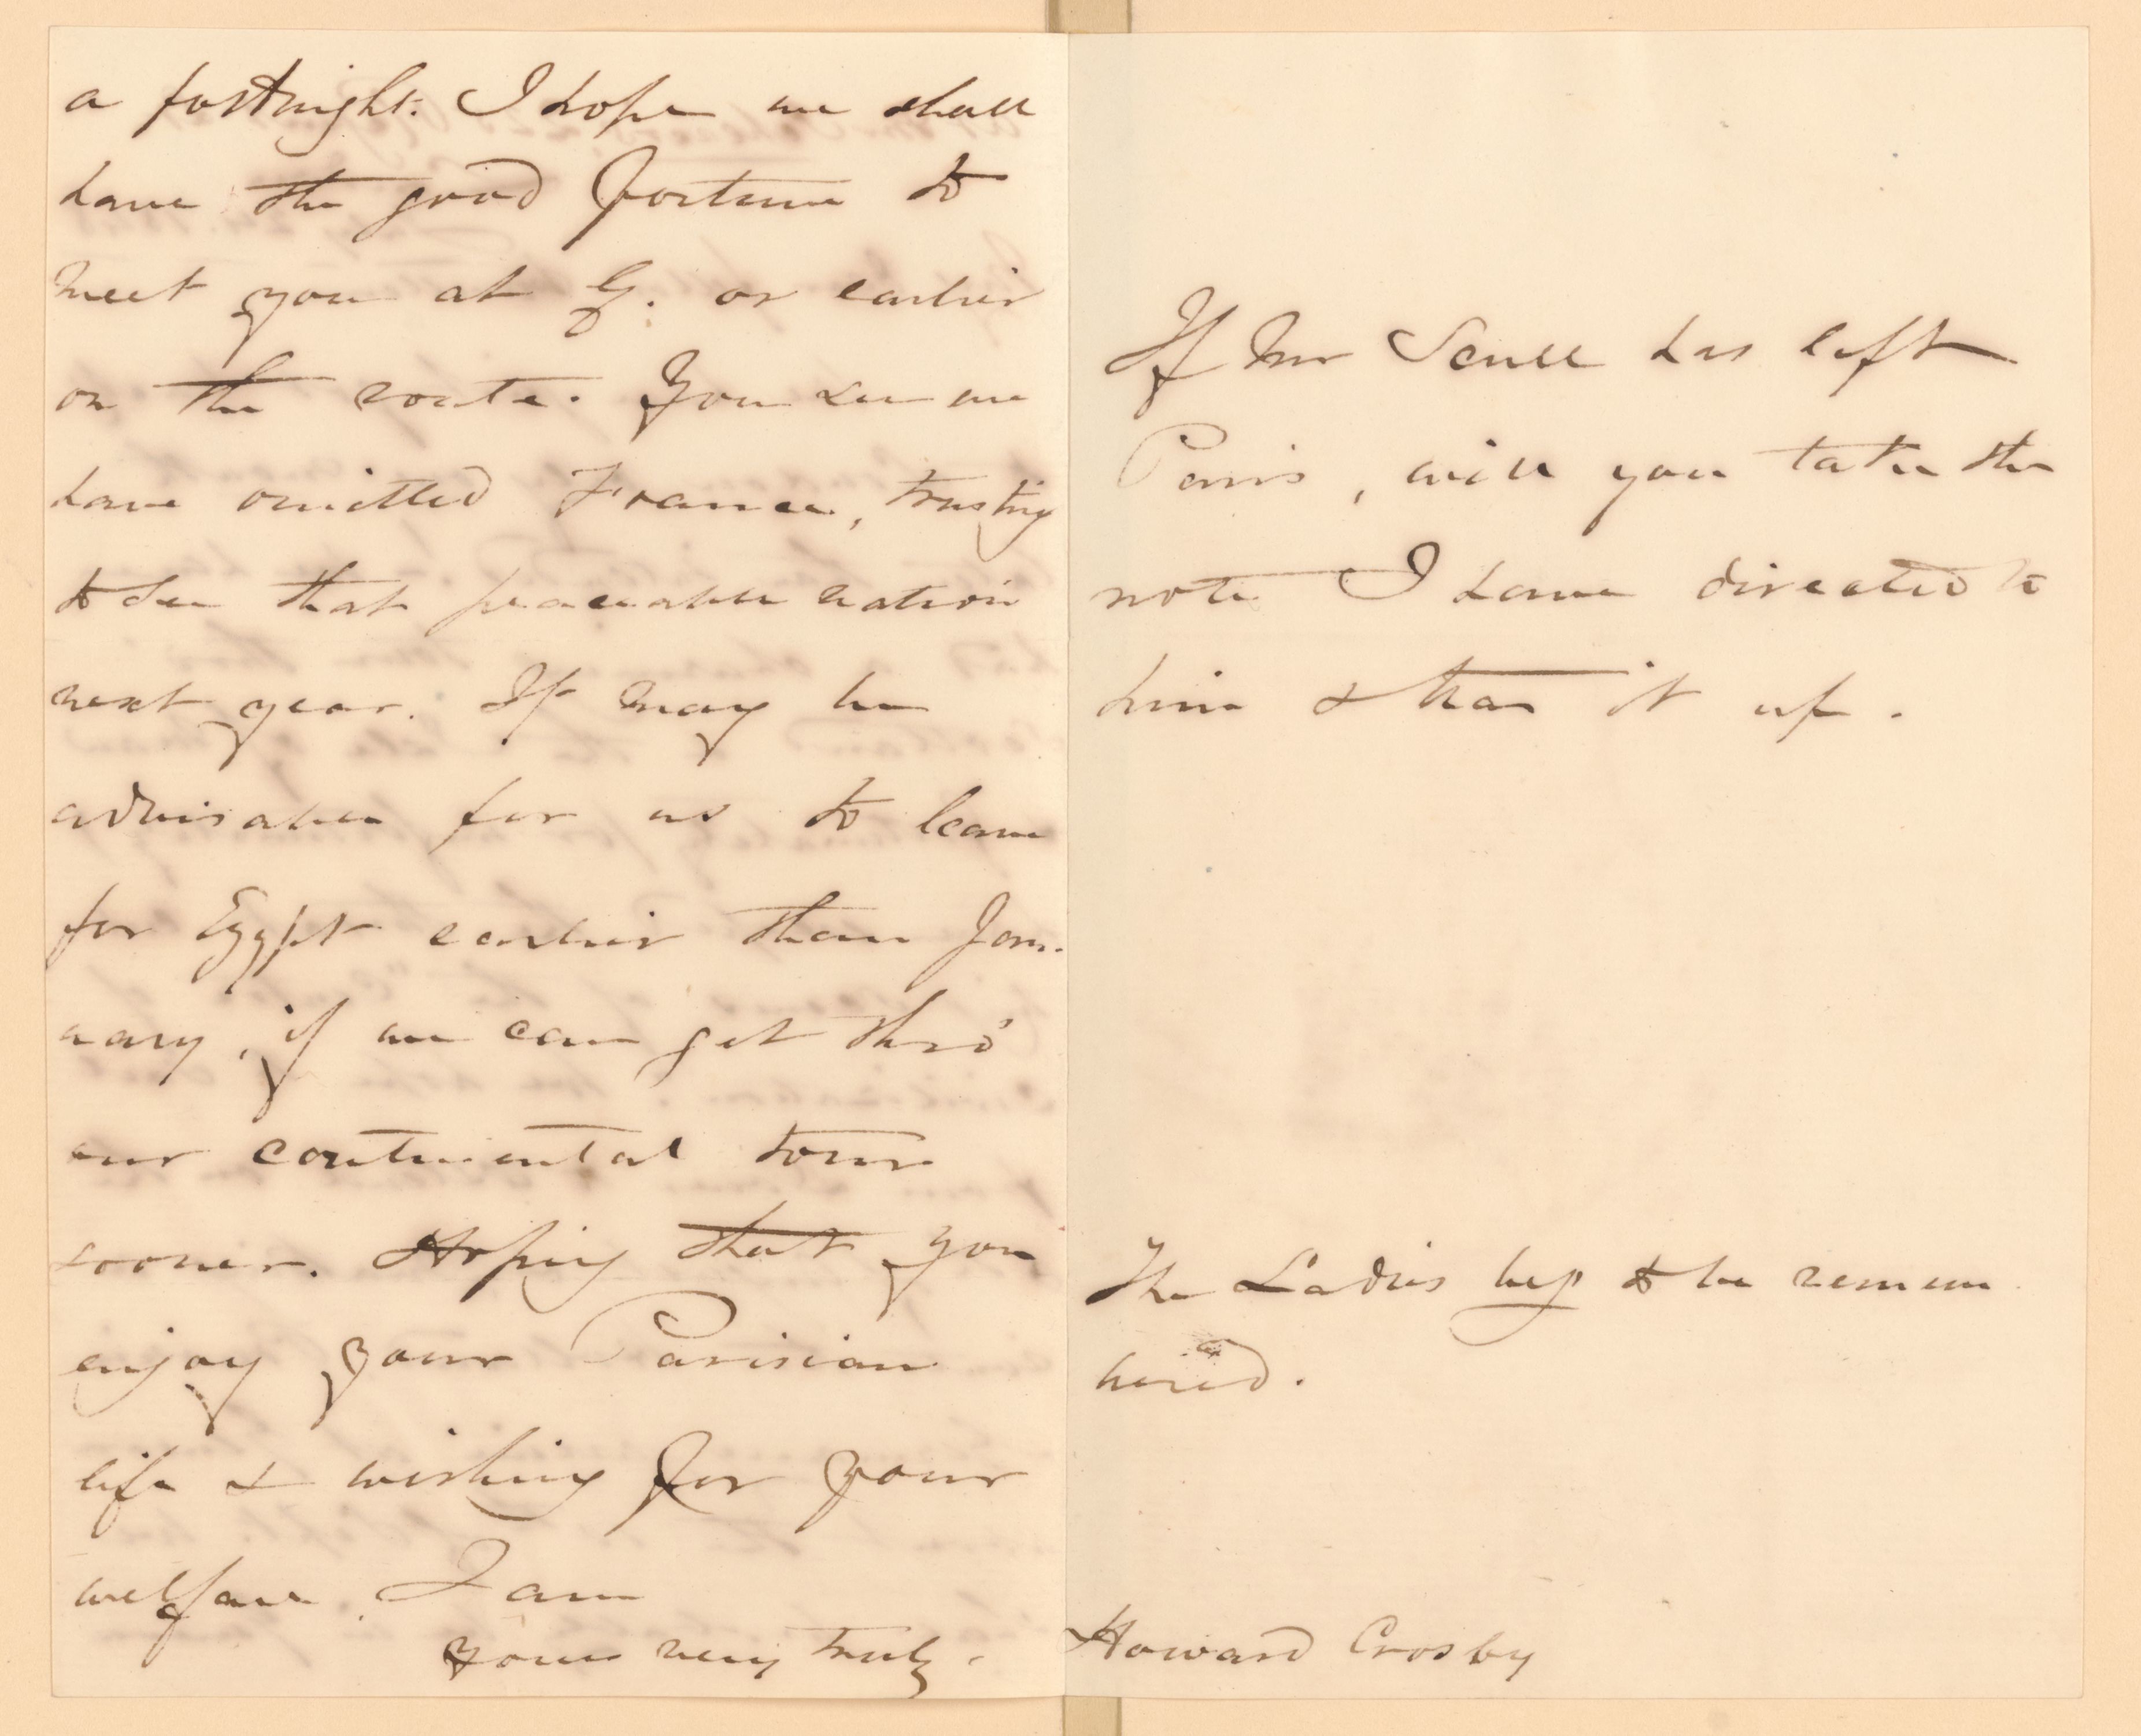 a fortnight. I hope we shall
have the good fortune to
meet you at G. or earlier
on the route. You see we
have omitted France, trusting
to see that peaceable nation
next year. It may be
advisable for us to leave
for Egypt earlier than Jan-
uary, if we can get thro'
our continental tour
sooner. Hoping that you
enjoy your Parisian
life & wishing for your
welfare, I am
yours very truly.
If Mr Scull has left
Paris, will you take the
note I have directed to
him & tear it up.
The Ladies beg to be remem
bered.
Howard Crosby